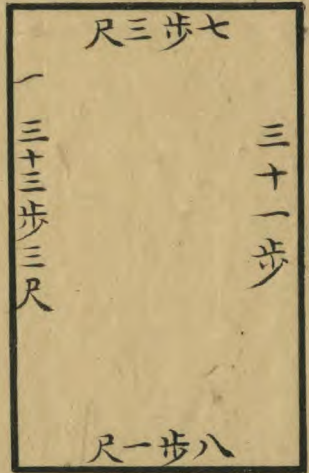 七步三尺
三十一步
一 三十三步三尺
八步一尺